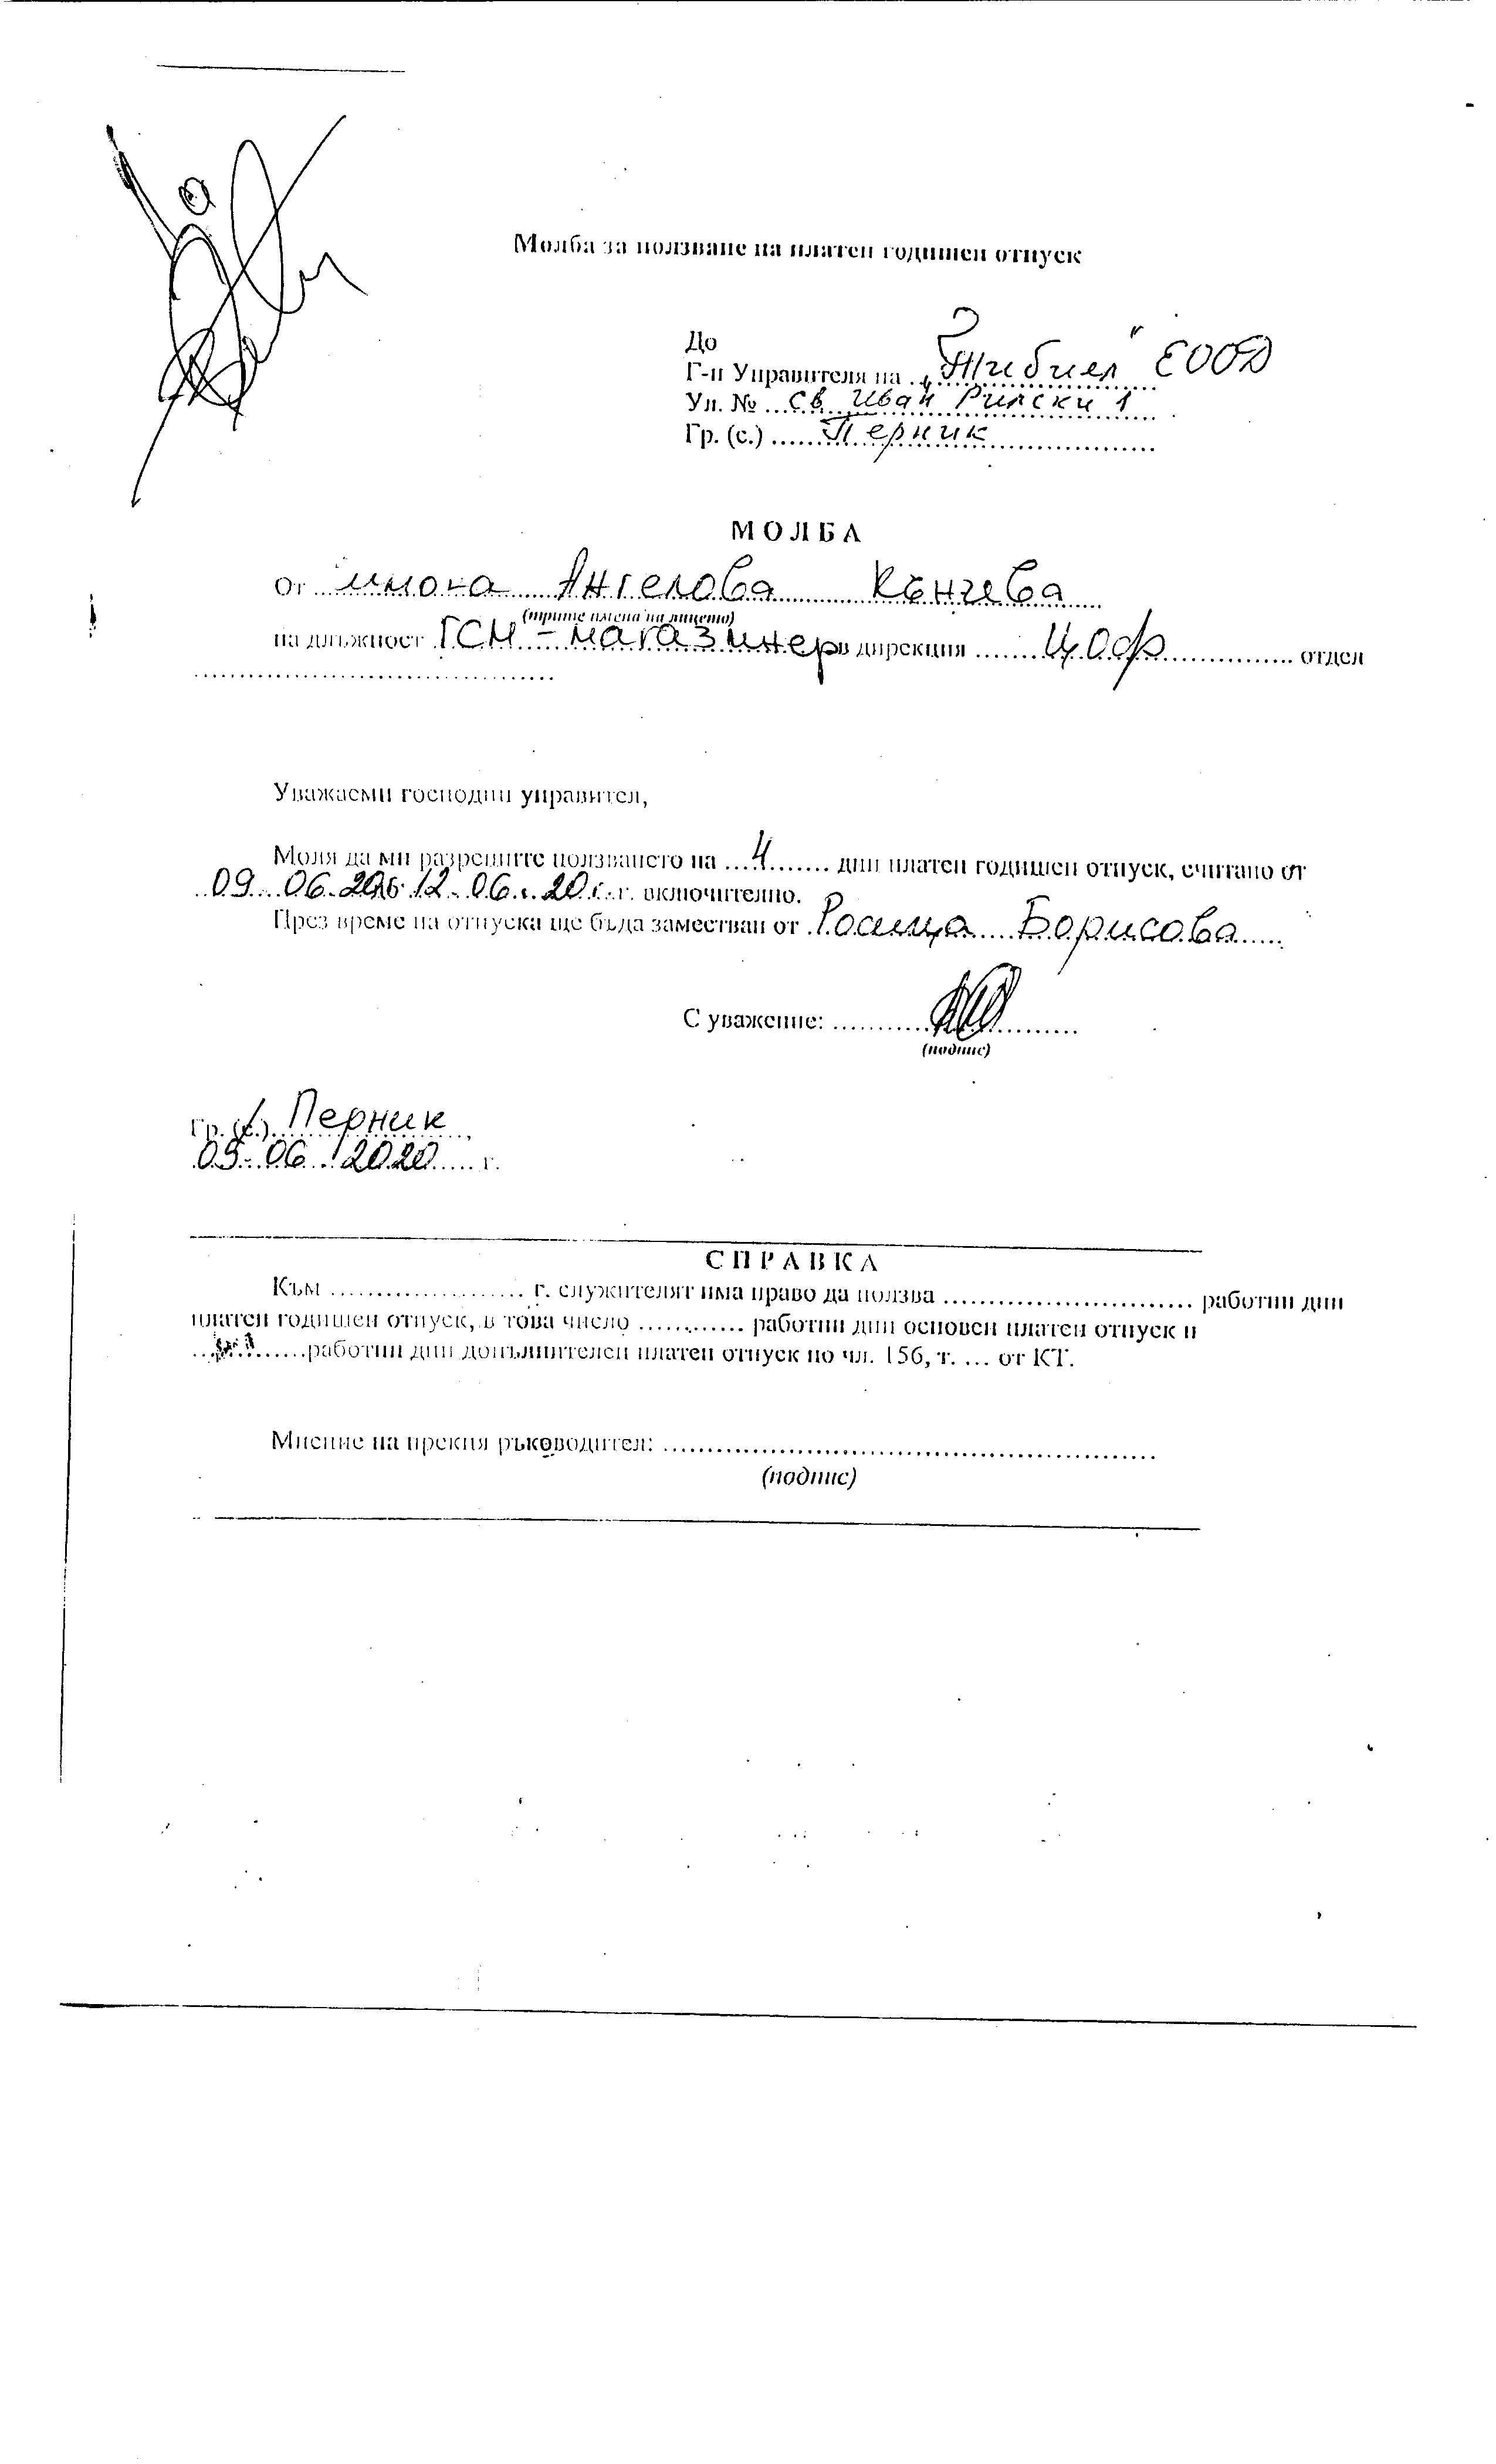 Да
Молба за ползване на платен годишен отпуск
До
Г-н Управителя на „Жибиел" ЕООД
Ул. № Св. Иван Рилски 1
Гр. (с.) Перник
МОЛБА
От Илиона Ангелова Кънчева
(трите имена на лицето)
на длъжност ГСМ - магазинер в дирекция ЦОФ отдел
Уважаеми господин управител,
Моля да ми разрешите ползването на 4 дни платен годишен отпуск, считано от
09.06.20г. 12.06.20г. г. включително.
През време на отпуска ще бъда заместван от Росица Борисова
С уважение:
(подпис)
Гр. (с.) Перник,
05.06.2020 г.
СПРАВКА
Към г. служителят има право да ползва работни дни
платен годишен отпуск, в това число работни дни основен платен отпуск и
работни дни допълнителен платен отпуск по чл. 156, т. ... от КТ.
Мнение на прекия ръководител:
(подпис)